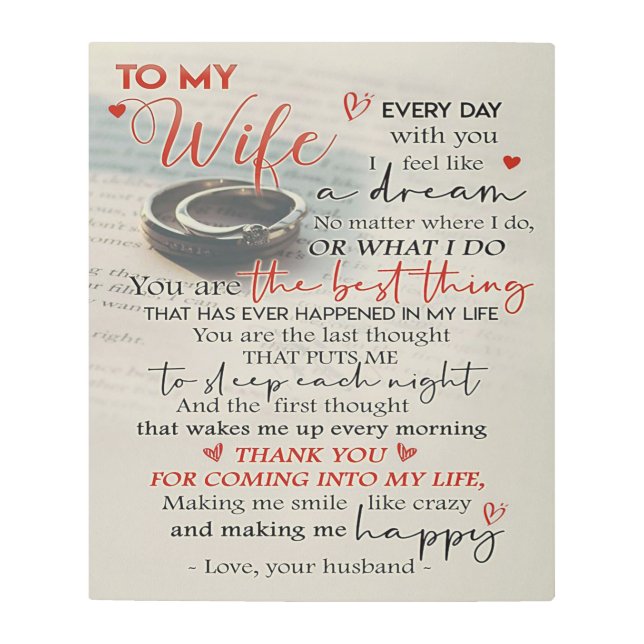 TO MY
Wife
EVERY DAY
with you
I feel like
a dream
No matter where I do,
OR WHAT I DO
You are the best thing
THAT HAS EVER HAPPENED IN MY LIFE
You are the last thought
THAT PUTS ME
to sleep each night
And the first thought
that wakes me up every morning
THANK YOU
FOR COMING INTO MY LIFE,
Making me smile like crazy
and making me happy
- Love, your husband -